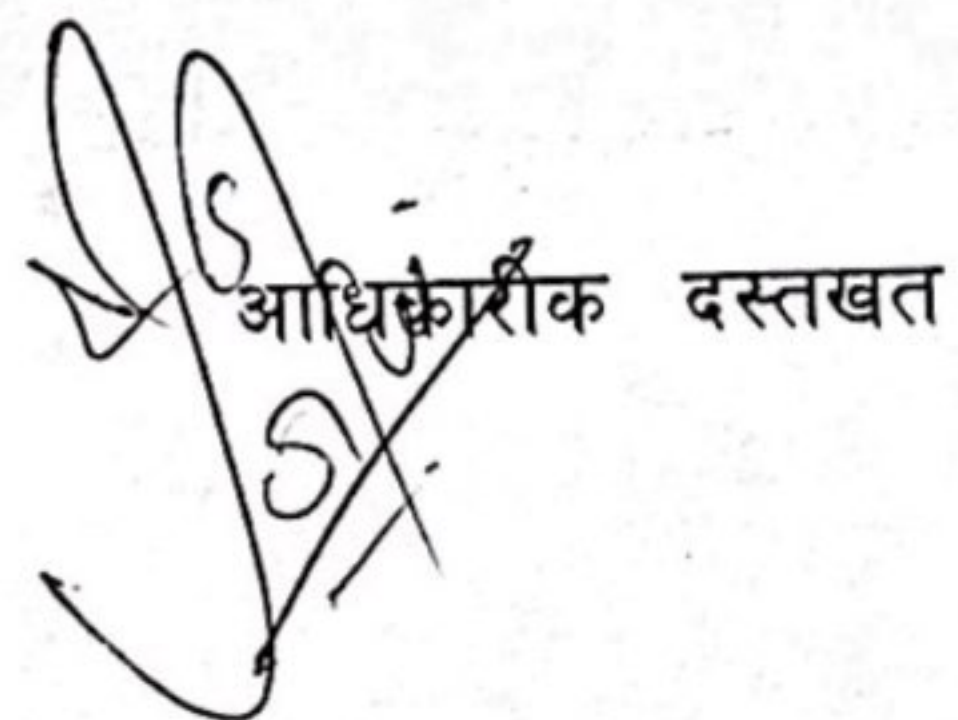 आधिकारीक दस्तखत